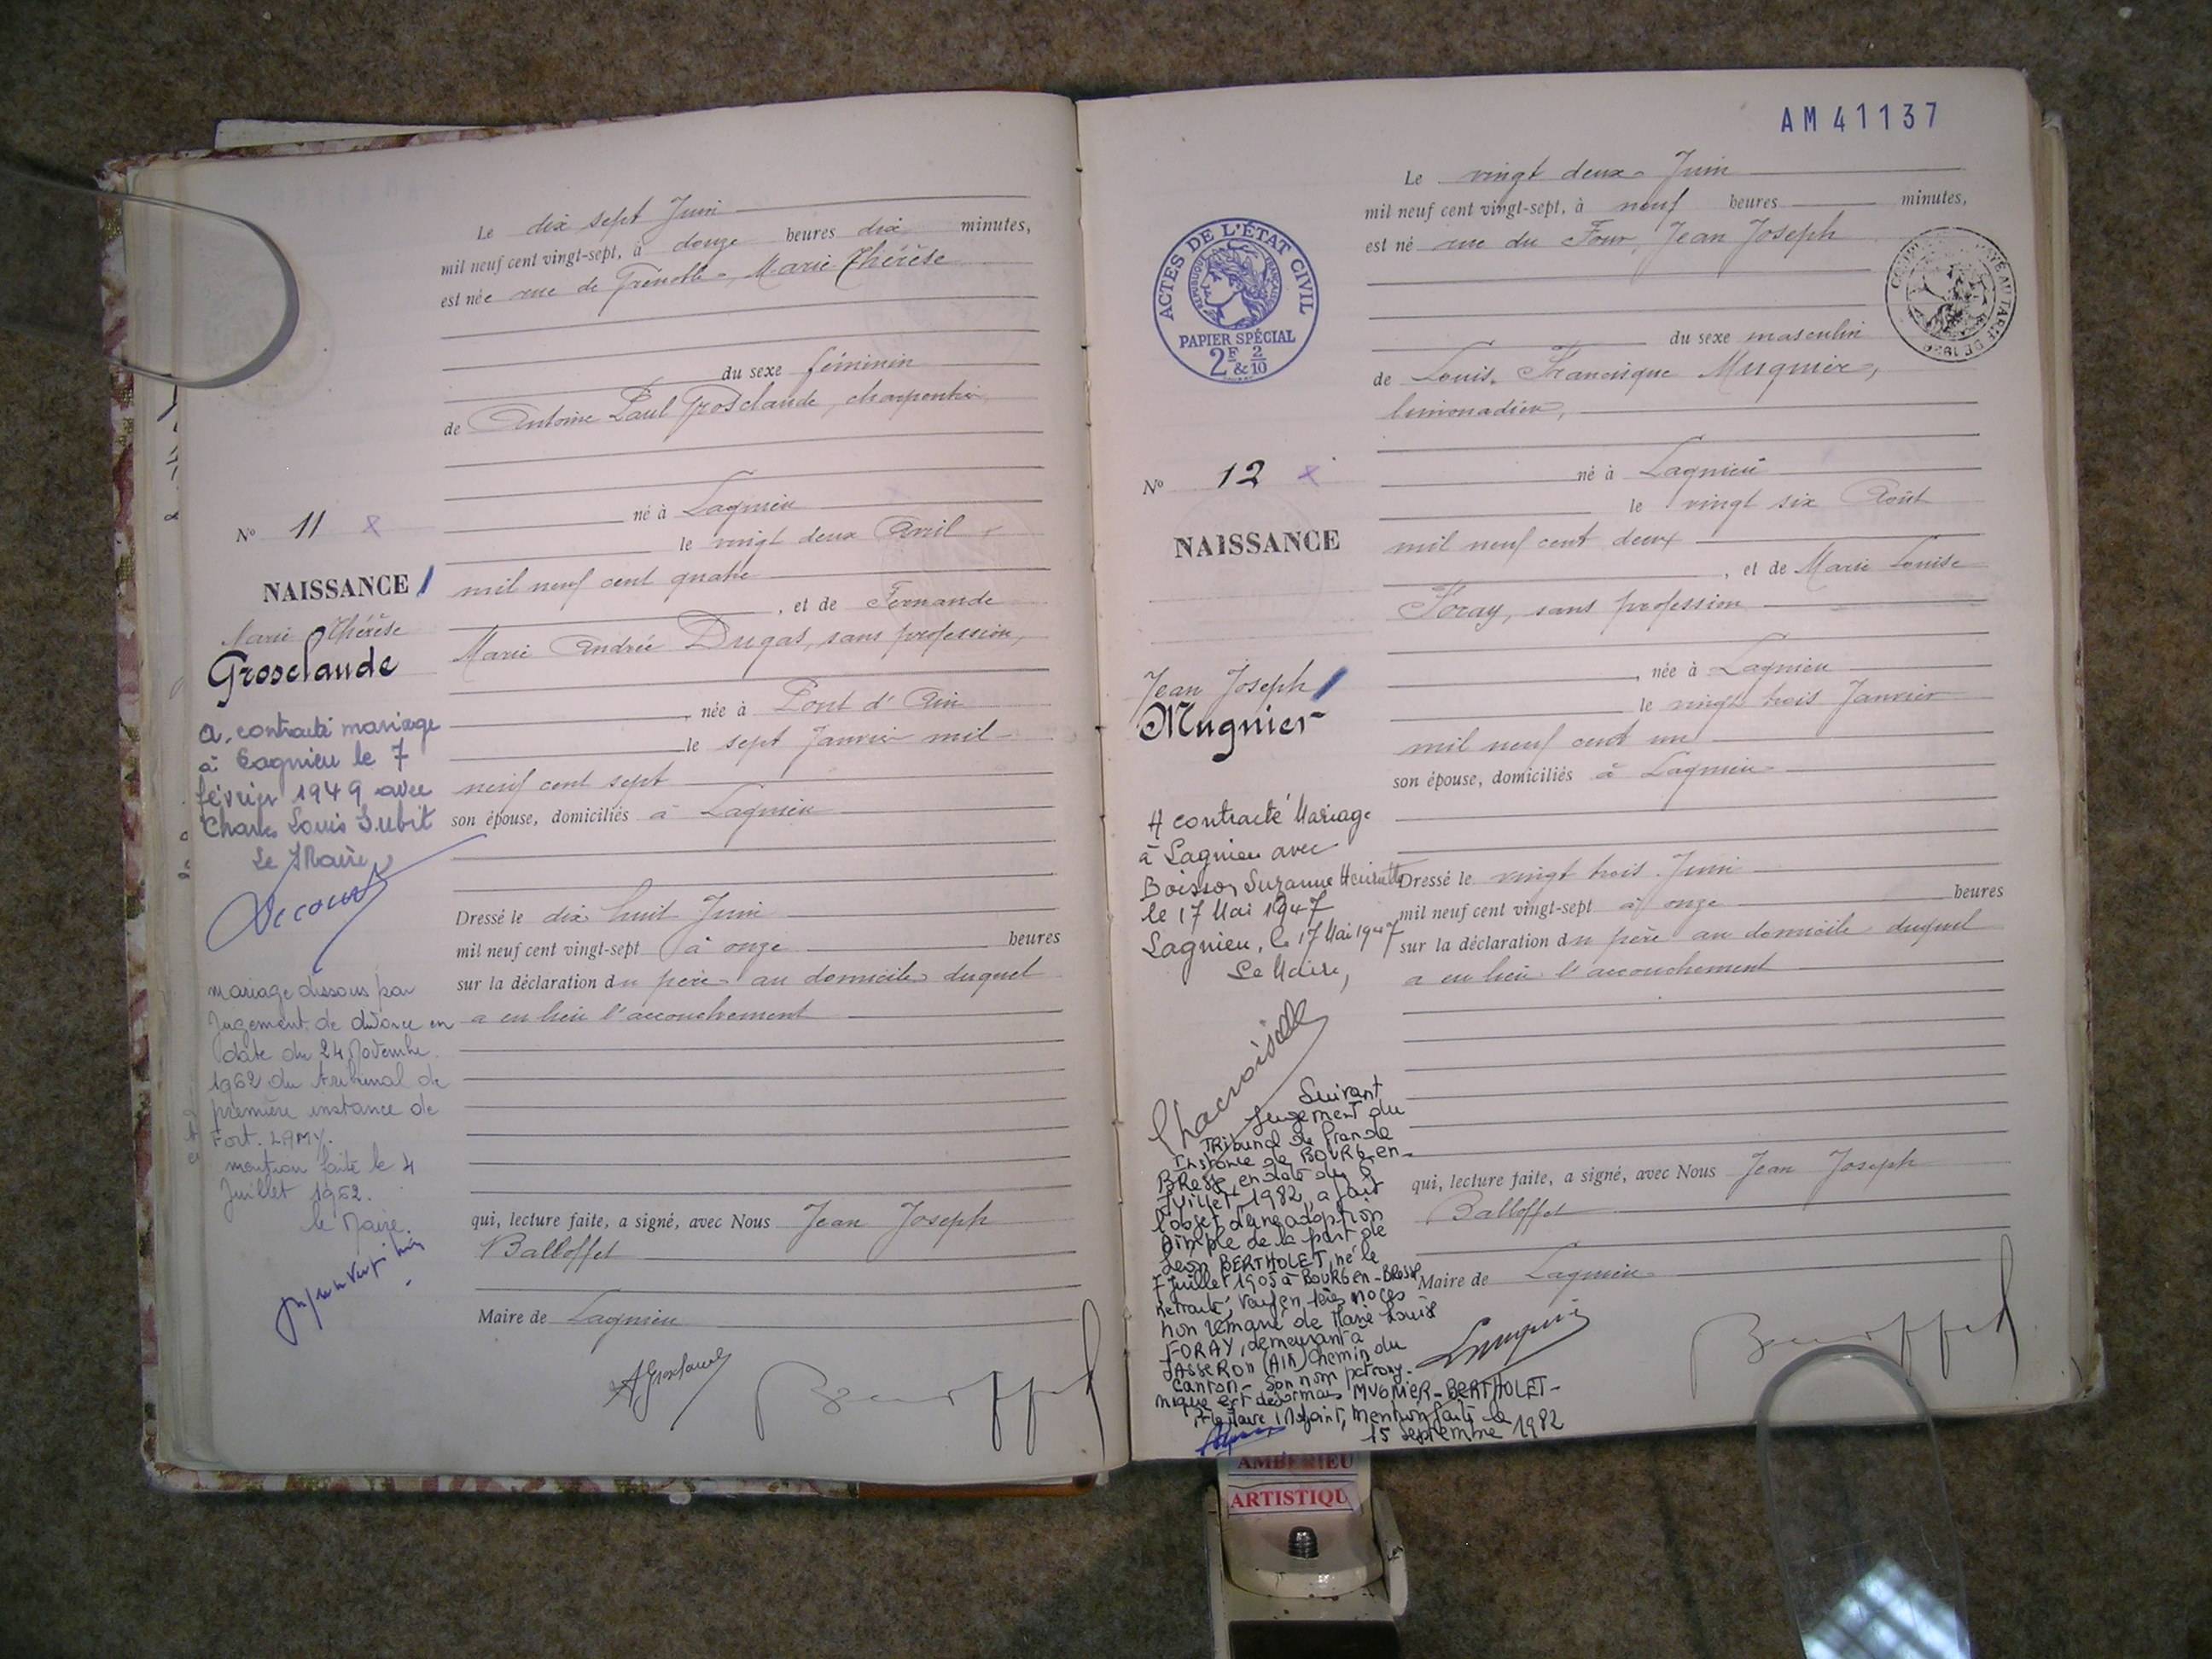 Le dix sept Juin
mil neuf cent vingt-sept, à douze heures dix minutes,
est née rue de Grenoble, Marie Thérèse
du sexe féminin
de Antoine Paul Grosclaude, charpentier
né à Lagnieu
le vingt deux Avril
mil neuf cent quatre
, et de Fernande
Marie Andrée Dugas, sans profession,
, née à Pont d'Ain
le sept Janvier mil
neuf cent sept
son épouse, domiciliés à Lagnieu
Dressé le dix huit Juin
mil neuf cent vingt-sept à onze heures
sur la déclaration du père au domicile duquel
a eu lieu l'accouchement
qui, lecture faite, a signé, avec Nous Jean Joseph
Balloffet
Maire de Lagnieu
AGrosclaude
Balloffet
N° 11 x
NAISSANCE
Marie Thérèse
Grosclaude
a contracté mariage
à Lagnieu le 7
février 1949 avec
Charles Louis Subit
Le Maire
mariage dissous par
Jugement de divorce en
date du 24 Novembre
1962 du tribunal de
première instance de
Fort-LAMY.
mention faite le 4
Juillet 1962.
le Maire.
AM41137
Le vingt deux Juin
mil neuf cent vingt-sept, à neuf heures minutes,
est né rue du Four, Jean Joseph
du sexe masculin
de Louis Francisque Mugnier,
limonadier,
né à Lagnieu
le vingt six Août
mil neuf cent deux
, et de Marie Louise
Foray, sans profession
, née à Lagnieu
le vingt trois Janvier
mil neuf cent un
son épouse, domiciliés à Lagnieu
Dressé le vingt trois Juin
mil neuf cent vingt-sept à onze heures
sur la déclaration du père au domicile duquel
a eu lieu l'accouchement
qui, lecture faite, a signé, avec Nous Jean Joseph
Balloffet
Maire de Lagnieu
Balloffet
ACTES DE L'ÉTAT CIVIL
RÉPUBLIQUE FRANÇAISE
PAPIER SPÉCIAL
2F & 2/10
AU TARIF DE 1926
N° 12 x
NAISSANCE
Jean Joseph
Mugnier
A contracté Mariage
à Lagnieu avec
Boisson Suzanne Henriette
le 17 Mai 1947
Lagnieu, le 17 Mai 1947
Le Maire,
Suivant
Jugement du
Tribunal de Grande
Instance de BOURG-en-
BResse, en date du 6
Juillet 1982, a fait
l'objet d'une adoption
simple de la part de
Léon BERTHOLET, né le
7 Juillet 1905 à Bourg-en-Bresse
Retraité, Veuf en 1ères noces
non remarié de Marie Louise
FORAY, demeurant à
JASSERON (AIN) chemin du
Canton - Son nom patrony-
mique est désormais MUGNIER-BERTHOLET-
P/ le Maire l'Adjoint, Mention faite le
15 septembre 1982
AMBÉRIEU
ARTISTIQU